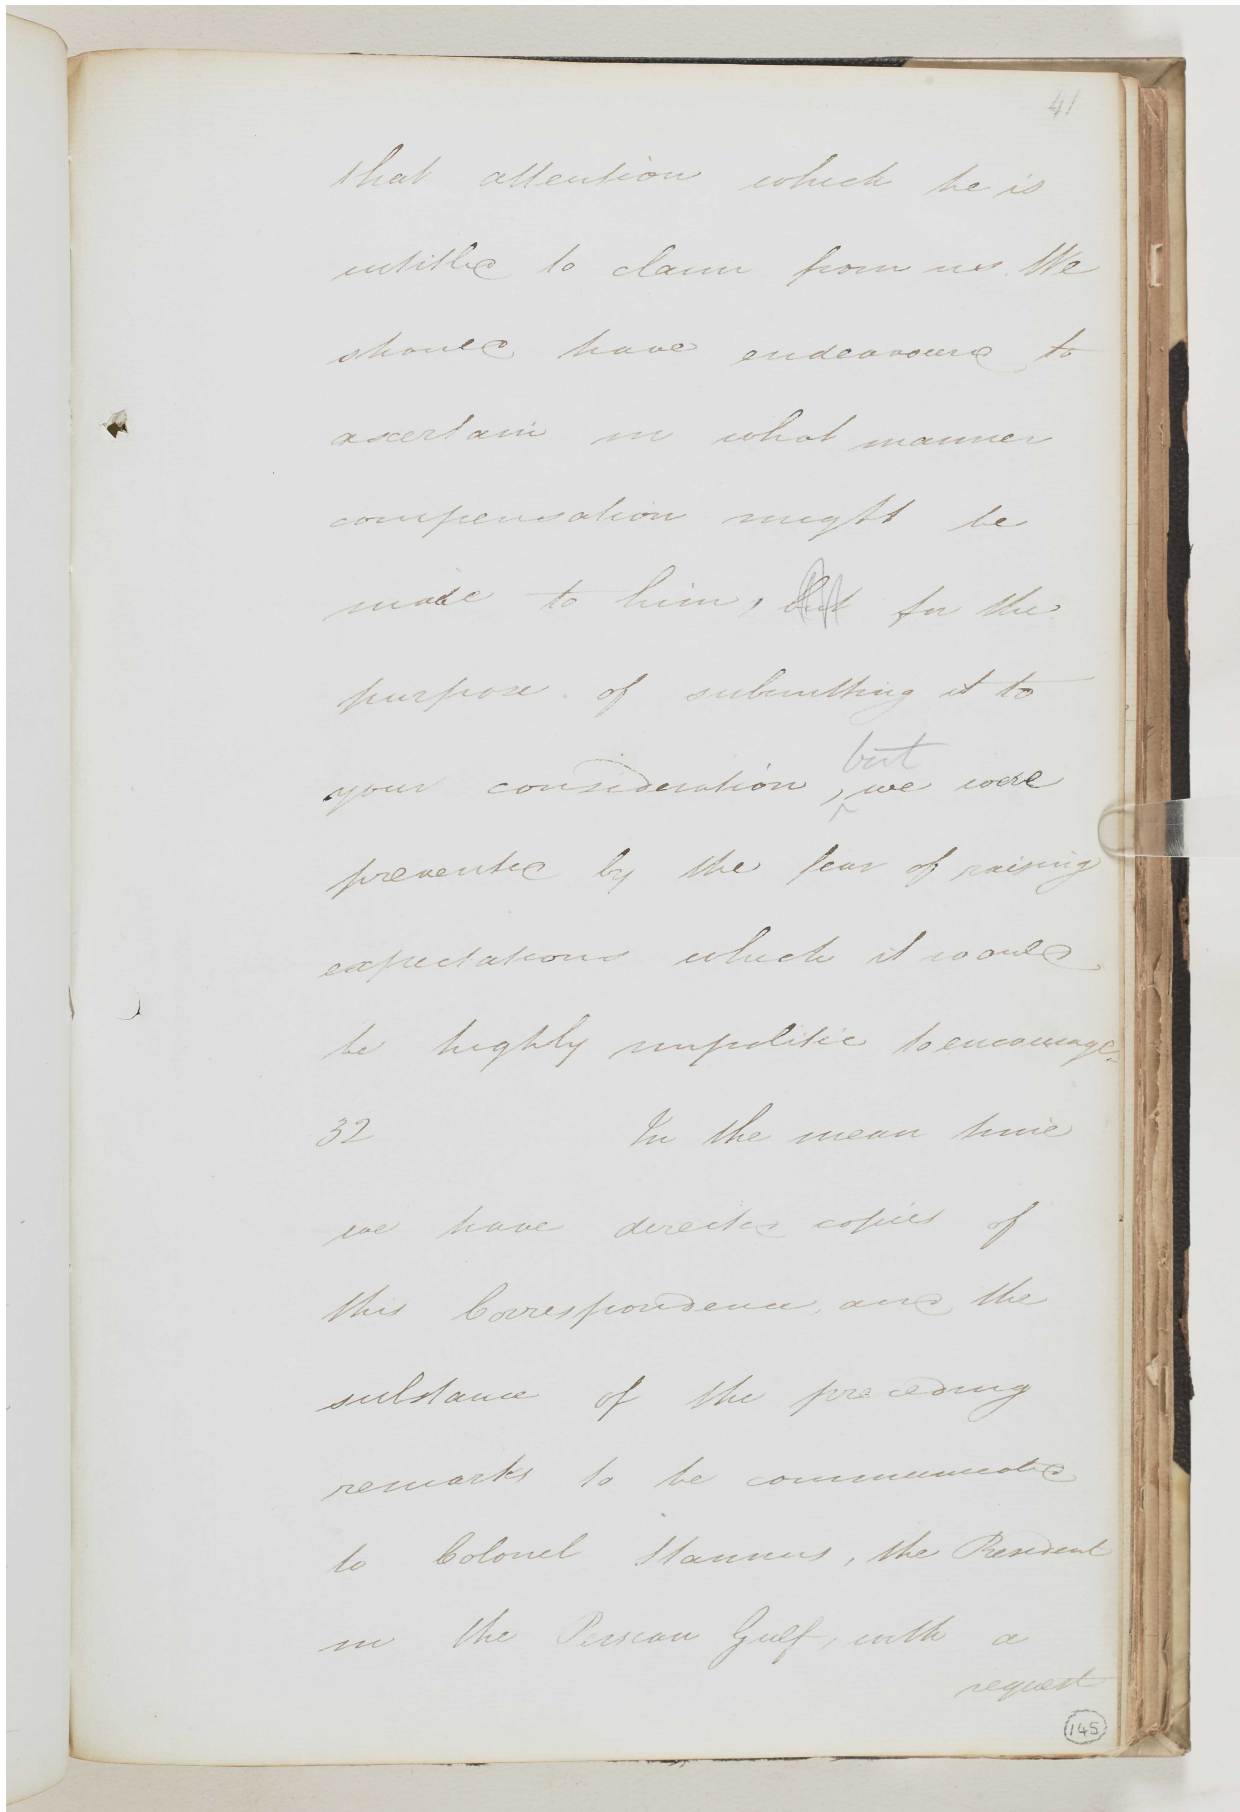 41
that attention which he is
entitled to claim from us. We
should have endeavoured to
ascertain in what manner
compensation might be
made to him, but for the
purpose of submitting it to
but
your consideration, we were
prevented by the fear of raising
expectations which it would
be highly impolitic to encourage.
32 In the mean time
we have directed copies of
this Correspondence, and the
substance of the preceding
remarks to be communicated
to Colonel Stannus, the Resident
in the Persian Gulf, with a
request
145